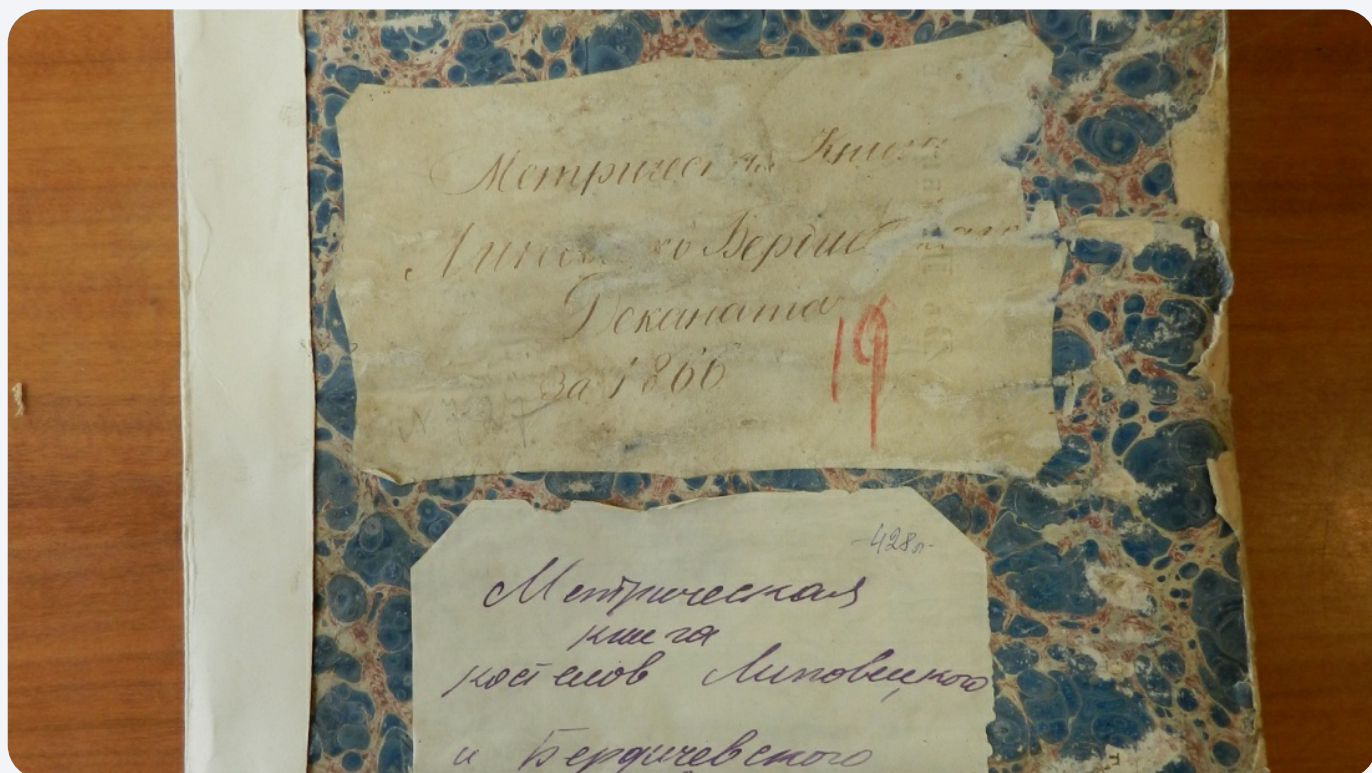 Метрическая Книга
Липовецко Бердичевскаго
Деканата
за 1866
19
-428л-
Метрическая
книга
костелов Липовецкого
и Бердичевского